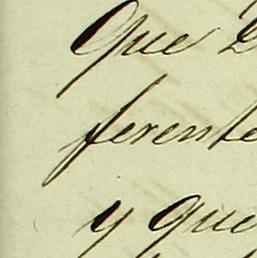 Que
ferente
y que